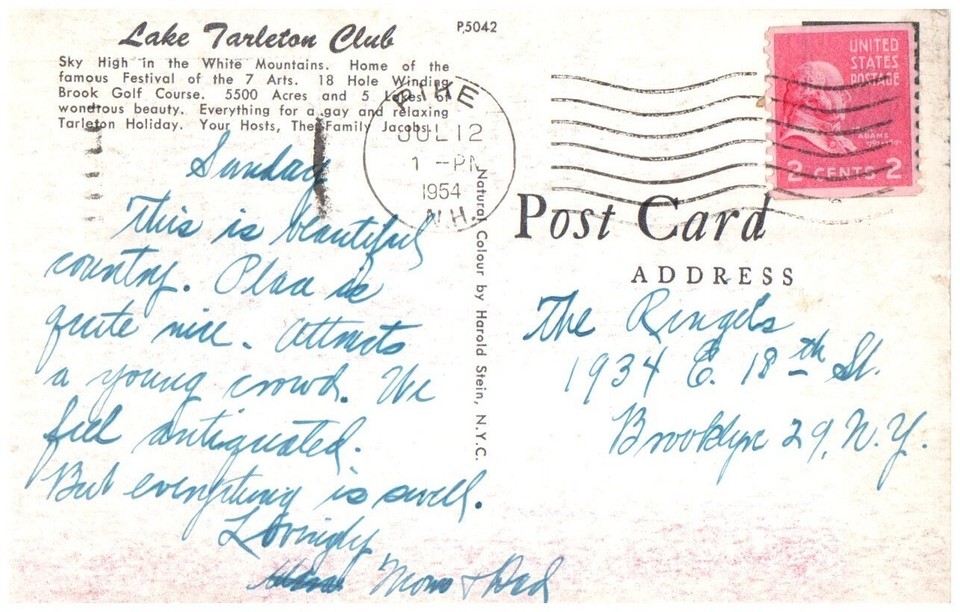 Lake Tarleton Club
P5042
Sky High in the White Mountains. Home of the
famous Festival of the 7 Arts. 18 Hole Winding
Brook Golf Course. 5500 Acres and 5 Lakes of
wondrous beauty. Everything for a gay and relaxing
Tarleton Holiday. Your Hosts, The Family Jacobs.
PIKE
JUL 12
1 - PM
1954
N.H.
UNITED
STATES
POSTAGE
ADAMS
2 CENTS 2
Sunday
This is beautiful
country. Place is
quite nice. Attracts
a young crowd. We
feel antiquated.
But everything is swell.
Lovingly
Mom & Dad
Natural Colour by Harold Stein, N.Y.C.
Post Card
ADDRESS
The Ringels
1934 E. 18th St.
Brooklyn 29, N.Y.